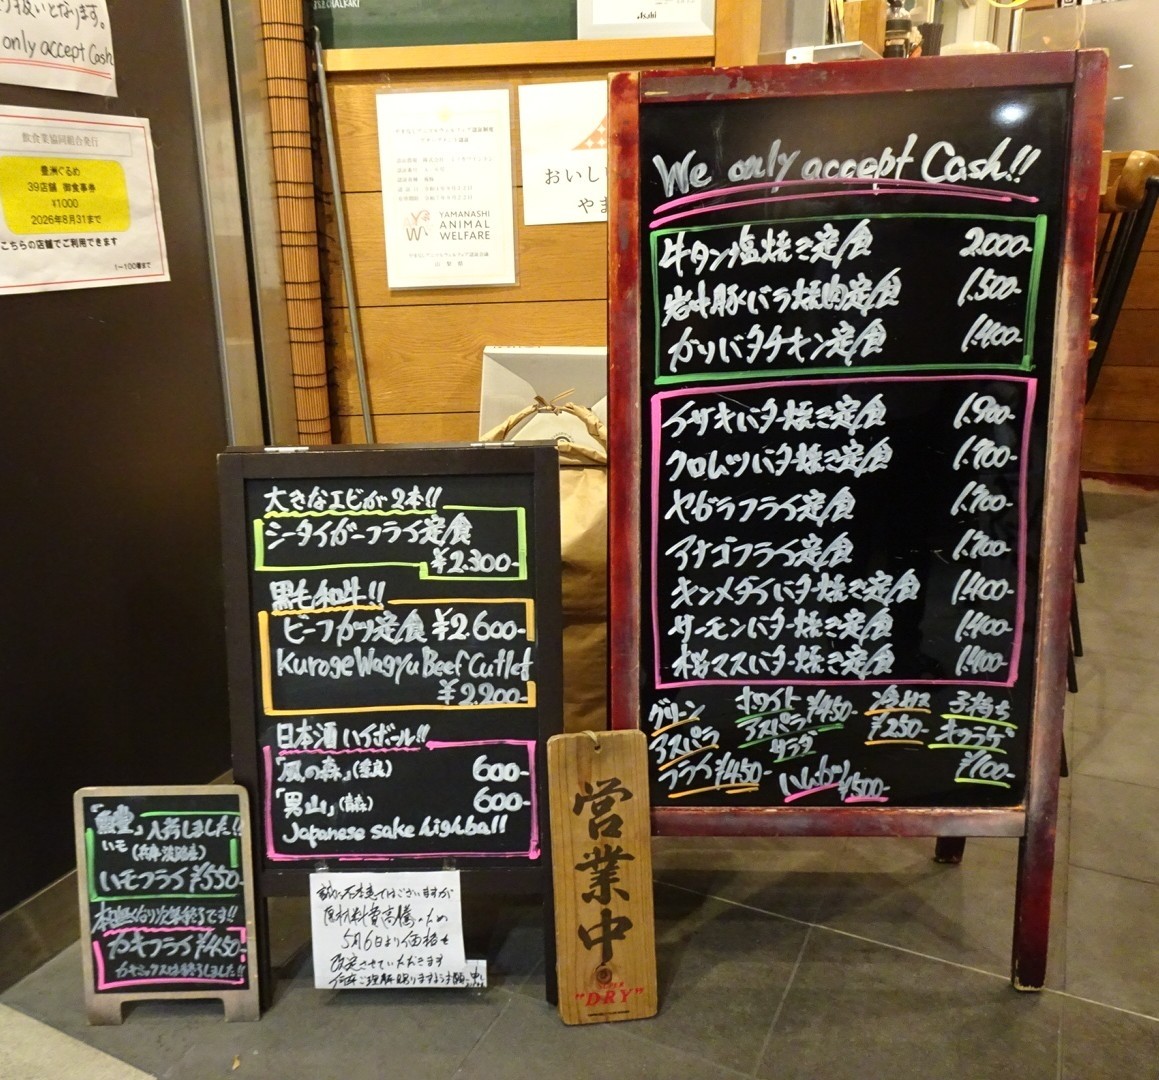 only accept Cash
飲食業協同組合発行
豊洲ぐるめ
39店舗 御食事券
¥1000
2026年8月31まで
こちらの店舗でご利用できます
1~100番まで
Asahi
YAMANASHI
ANIMAL
WELFARE
おいし
やま
We only accept Cash!!
牛タン塩焼き定食 2.000-
岩中豚バラ焼肉定食 1.500-
ガリバタチキン定食 1.400-
イサキバター焼き定食 1.900-
クロムツバター焼き定食 1.700-
ヤガラフライ定食 1.700-
アナゴフライ定食 1.700-
キンメダイバター焼き定食 1.400-
サーモンバター焼き定食 1.400-
桜マスバター焼き定食 1.400-
グリーン
アスパラ
フライ¥450-
ホワイト
アスパラ ¥450-
サラダ
ハムカツ
¥500-
冷トマト
¥250-
子持ち
キクラゲ
¥100-
大きなエビが2本!!
シータイガーフライ定食
¥2.300-
黒毛和牛!!
ビーフカツ定食 ¥2.600-
Kuroge Wagyu Beef Cutlet
¥2.200-
日本酒ハイボール!!
「風の森」(奈良) 600-
「男山」 600-
Japanese sake highball
入荷しました!!
ハモ (兵庫 淡路産)
ハモフライ ¥550-
カキフライ ¥450-
カキミックスは終了しました!!
誠に不本意ではございますが
原材料費高騰のため
5月6日より価格を
改定させていただきます
営業中
"DRY"